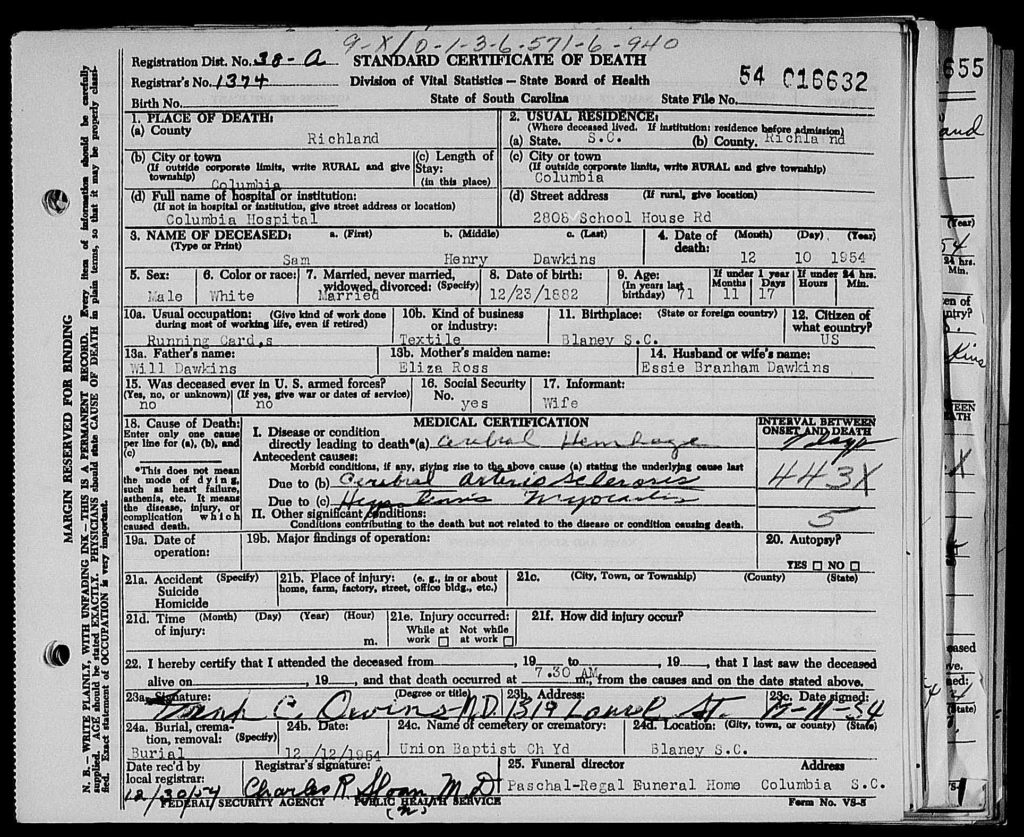 9-X/0-1-3-6-571-6-940
Registration Dist. No. 38-A STANDARD CERTIFICATE OF DEATH
Registrar's No. 1374 Division of Vital Statistics — State Board of Health 54 016632
Birth No. State of South Carolina State File No.
1. PLACE OF DEATH:
(a) County
Richland
2. USUAL RESIDENCE:
(Where deceased lived. If institution: residence before admission)
(a) State. S.C. (b) County. Richla nd
(b) City or town
(If outside corporate limits, write RURAL and give township)
Columbia
(c) Length of Stay:
(in this place)
(c) City or town
(If outside corporate limits, write RURAL and give township)
Columbia
(d) Full name of hospital or institution:
(If not in hospital or institution, give street address or location)
Columbia Hospital
(d) Street address (If rural, give location)
2808 School House Rd
3. NAME OF DECEASED: a. (First) b. (Middle) c. (Last)
(Type or Print)
Sam Henry Dawkins
4. Date of death: (Month) (Day) (Year)
12 10 1954
5. Sex:
Male
6. Color or race:
White
7. Married, never married, widowed, divorced: (Specify)
Married
8. Date of birth:
12/23/1882
9. Age:
(In years last birthday) 71
If under 1 year
Months Days
11 17
If under 24 hrs.
Hours Min.
10a. Usual occupation: (Give kind of work done during most of working life, even if retired)
Running Card,s
10b. Kind of business or industry:
Textile
11. Birthplace: (State or foreign country)
Blaney S.C.
12. Citizen of what country?
US
13a. Father's name:
Will Dawkins
13b. Mother's maiden name:
Eliza Ross
14. Husband or wife's name:
Essie Branham Dawkins
15. Was deceased ever in U. S. armed forces?
(Yes, no, or unknown) (If yes, give war or dates of service)
no no
16. Social Security No.
yes
17. Informant:
Wife
18. Cause of Death:
Enter only one cause per line for (a), (b), and (c)
*This does not mean the mode of dying, such as heart failure, asthenia, etc. It means the disease, injury, or complication which caused death.
MEDICAL CERTIFICATION
INTERVAL BETWEEN ONSET AND DEATH
I. Disease or condition
directly leading to death*(a) Cerebral Hemrhage
Antecedent causes:
Morbid conditions, if any, giving rise to the above cause (a) stating the underlying cause last
Due to (b) Cerebral arterio sclerosis
443X
Due to (c)
II. Other significant conditions:
Conditions contributing to the death but not related to the disease or condition causing death.
5
19a. Date of operation:
19b. Major findings of operation:
20. Autopsy?
YES NO
21a. Accident (Specify)
Suicide
Homicide
21b. Place of injury: (e. g., in or about home, farm, factory, street, office bldg., etc.)
21c. (City, Town, or Township) (County) (State)
21d. Time of injury: (Month) (Day) (Year) (Hour)
m.
21e. Injury occurred:
While at work Not while at work
21f. How did injury occur?
22. I hereby certify that I attended the deceased from , 19 to , 19 , that I last saw the deceased
alive on , 19 , and that death occurred at 7.30 AM m., from the causes and on the date stated above.
23a. Signature: (Degree or title)
Frank C. Owens M.D.
23b. Address:
1319 Laurel St.
23c. Date signed:
24a. Burial, cremation, removal: (Specify)
Burial
24b. Date:
12 /12/1954
24c. Name of cemetery or crematory:
Union Baptist Ch Yd
24d. Location: (City, town, or county) (State)
Blaney S.C.
Date rec'd by local registrar:
12/30/54
Registrar's signature:
Charles R. Sloan M.D.
25. Funeral director Address
Paschal-Regal Funeral Home Columbia S.C.
FEDERAL SECURITY AGENCY PUBLIC HEALTH SERVICE Form No. VS-5
MARGIN RESERVED FOR BINDING
N. B. — WRITE PLAINLY, WITH UNFADING INK — THIS IS A PERMANENT RECORD. Every item of information should be carefully
supplied. AGE should be stated EXACTLY. PHYSICIANS should state CAUSE OF DEATH in plain terms, so that it may be properly classified.
Exact statement of OCCUPATION is very important.
655
(Year)
24 hrs.
Min.